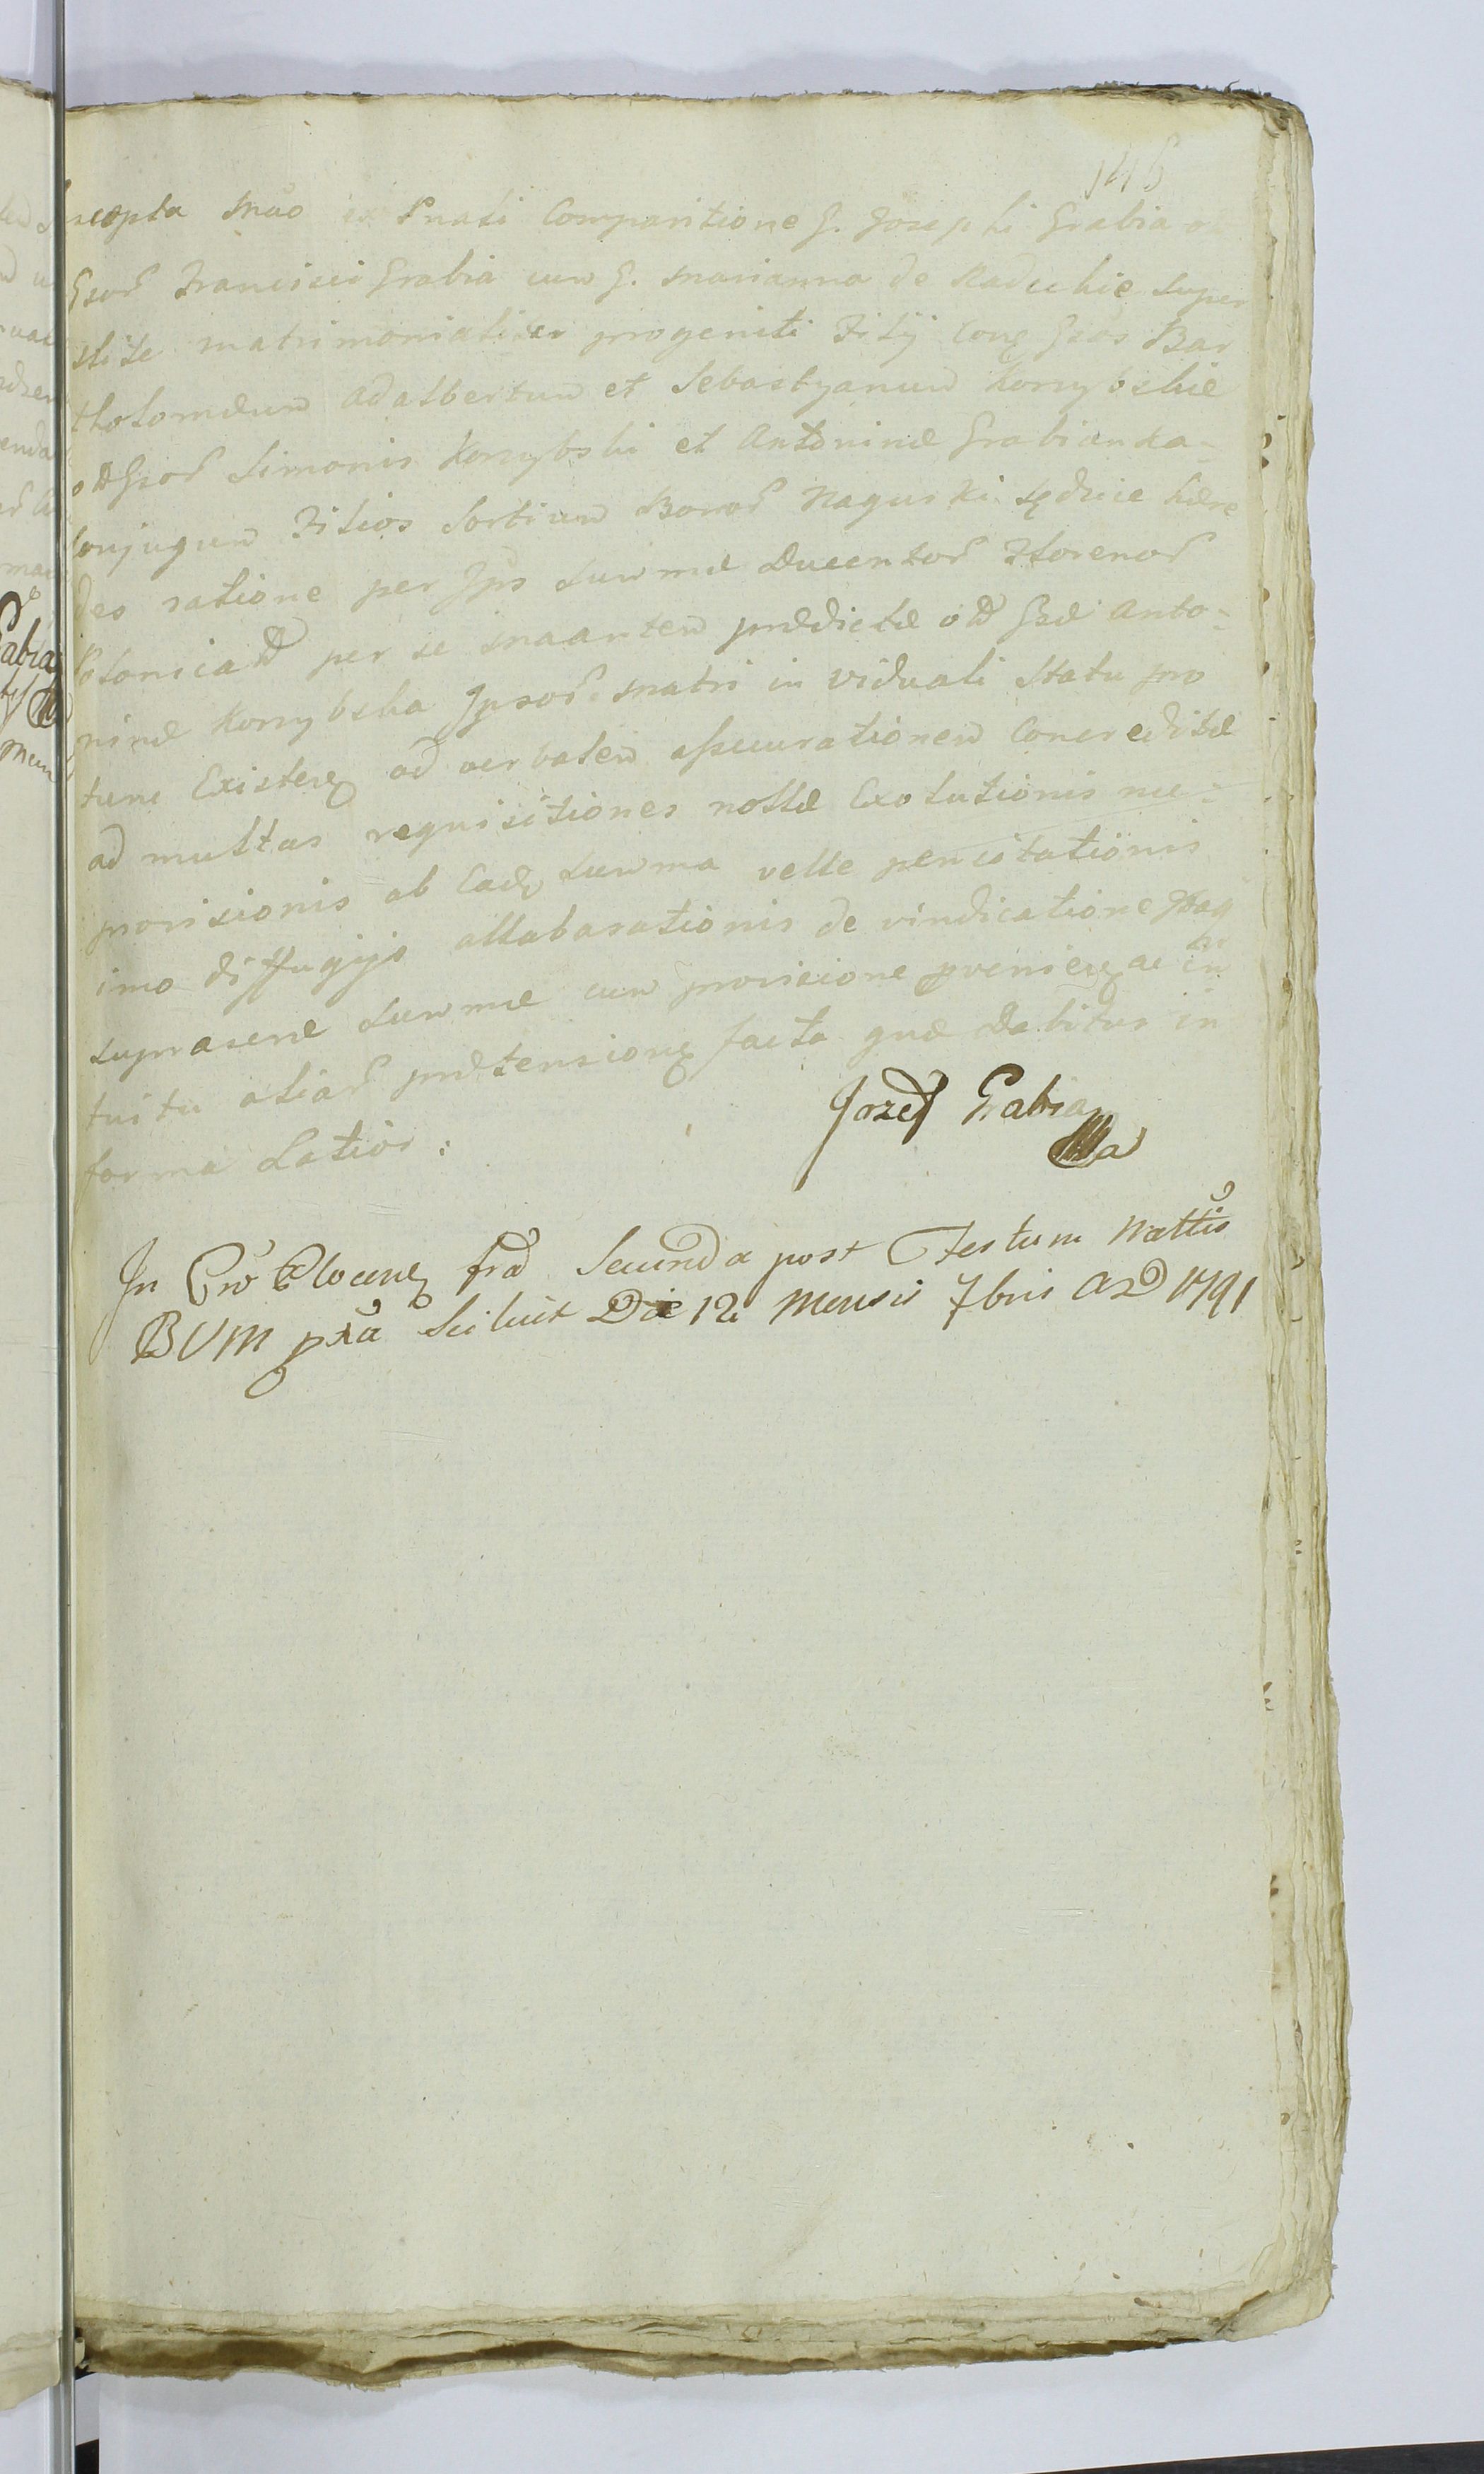 145
Suscepta Mão ex Pnali Comparitione G. Josephi Grabia o
Gsor Francisci Grabia cum G. Marianna de Raduckie super
stite matrimonialiter progeniti Filij Conꝫ Gsos Bar
tholomæum Adalbertum et Sebastyanum Korzybskie
o Gsor Simonis Korzybski et Antoninæ Grabianka =
Conjugum Filios Sortium Bonor Naguski Sędzie hære
des ratione per Jps Summæ Ducentor Florenor
Polonica per se Mãantem prædictæ o Gsæ Anto =
ninæ Korzybska Jpsor Matri in viduali Statu pro
tunc Existenꝫ ad verbalem assecurationem Concreditæ
ad multas requisitiones nollæ Exolutionis nec =
provisionis ab Eadꝫ Summa velle pensitationis
imo diffugijs allaborationis de vindicatione
suprascrae Summæ cum provisione pvenienꝫ ac in
tuitu aliar prætensionꝫ facta quæ Dabitur in
forma Latior :
Jozef Grabia
In Cro Plocenꝫ fra Secunda post Festum Nattis
BVM pxa Scilicet Die 12 Mensis 7bris AD 1791